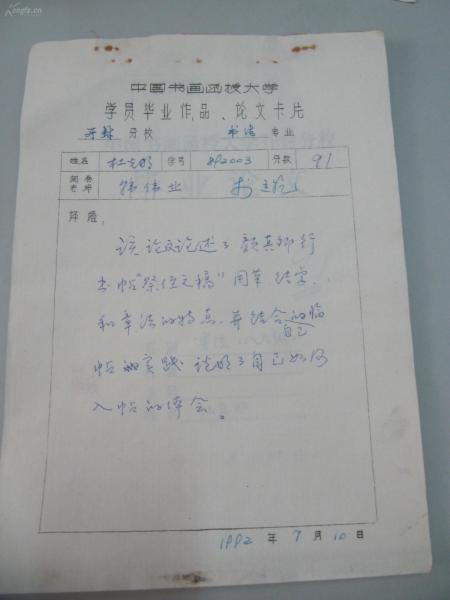 中国书画函授大学
学员毕业作品、论文卡片
分校 书法 专业
姓名 杜克明 学号 892003 分数 91
阅卷老师 韩伟业
评语,
该论文论述了颜真卿行
书帖"祭侄文稿"用笔 结字,
和章法的特点,并结合自己的临
帖的实践 说明了自己如何
入帖的体会。
1992 年 7 月 10 日